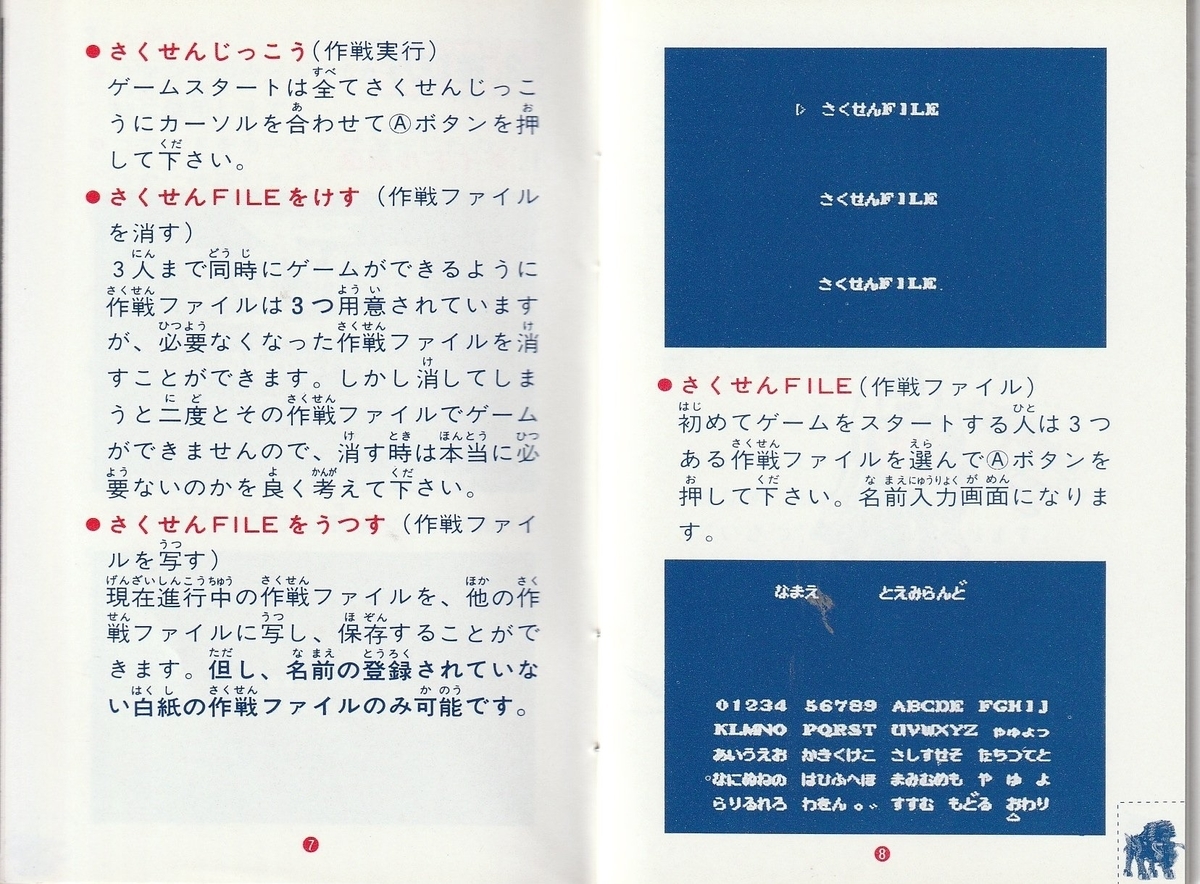 ●さくせんじっこう(作戦実行)
ゲームスタートは全てさくせんじっこ
うにカーソルを合わせてⒶボタンを押
して下さい。
●さくせんFILEをけす(作戦ファイル
を消す)
3人まで同時にゲームができるように
作戦ファイルは3つ用意されています
が、必要なくなった作戦ファイルを消
すことができます。しかし消してしま
うと二度とその作戦ファイルでゲーム
ができませんので、消す時は本当に必
要ないのかを良く考えて下さい。
●さくせんFILEをうつす(作戦ファイ
ルを写す)
現在進行中の作戦ファイルを、他の作
戦ファイルに写し、保存することがで
きます。但し、名前の登録されていな
い白紙の作戦ファイルのみ可能です。
7
さくせんFILE
さくせんFILE
さくせんFILE
●さくせんFILE(作戦ファイル)
初めてゲームをスタートする人は3つ
ある作戦ファイルを選んでⒶボタンを
押して下さい。名前入力画面になりま
す。
なまえ とえみらんど
01234 56789 ABCDE FGHIJ
KLMNO PQRST UVWXYZ ゃゅょっ
あいうえお かきくけこ さしすせそ たちつてと
なにぬねの はひふへほ まみむめも や ゆ よ
らりるれろ わをん。゛ すすむ もどる おわり
8